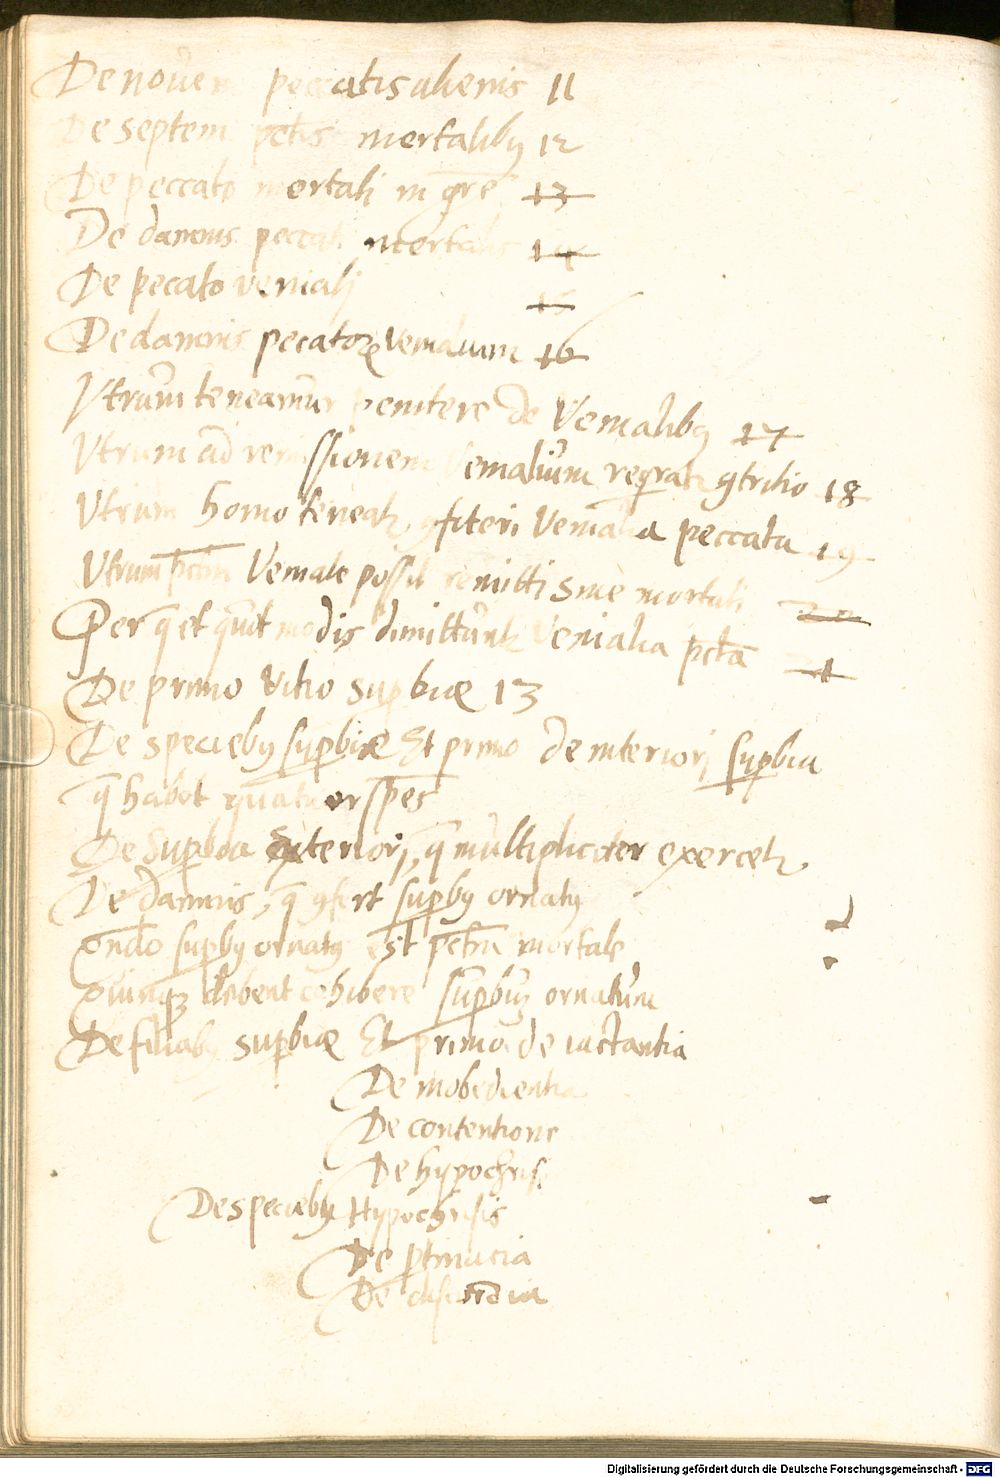 De novem peccatis alienis 11
De septem pctis mortalibꝯ 12
De peccato mortali in gñre 13
De damnis peccati mortalis 14
De pecato veniali 15
De damnis pecatoꝝ venialium 16
Vtrum teneamur penitere de Venialibꝯ 17
Vtrum ad remissionem venialium reqratr ꝯtritio 18
Vtrum homo teneatr ꝯfiteri Venialia peccata 19
Vtrum pctm Veniale possit remitti sine mortali 20
Per q̃ et quot modis dimittuntr Venialia pctã 21
De primo Vitio supbiæ 13
De speciebꝯ supbiæ Et primo de interiori supbia
q̃ habet quatuor spẽs
De Supbia exteriori, q̃ multipliciter exercetr
De damnis, q̃ ꝯfert supbꝯ ornatꝯ
Qñdo supbꝯ ornatꝯ est pctm mortale
debent cohibere supbũ ornatum
De filiabꝯ supbiæ Et primo de iactantia
De inobedientia
De contentione
De hypochrisi
De speciebꝯ Hypochrisis
De ptinacia
De
Digitalisierung gefördert durch die Deutsche Forschungsgemeinschaft - DFG